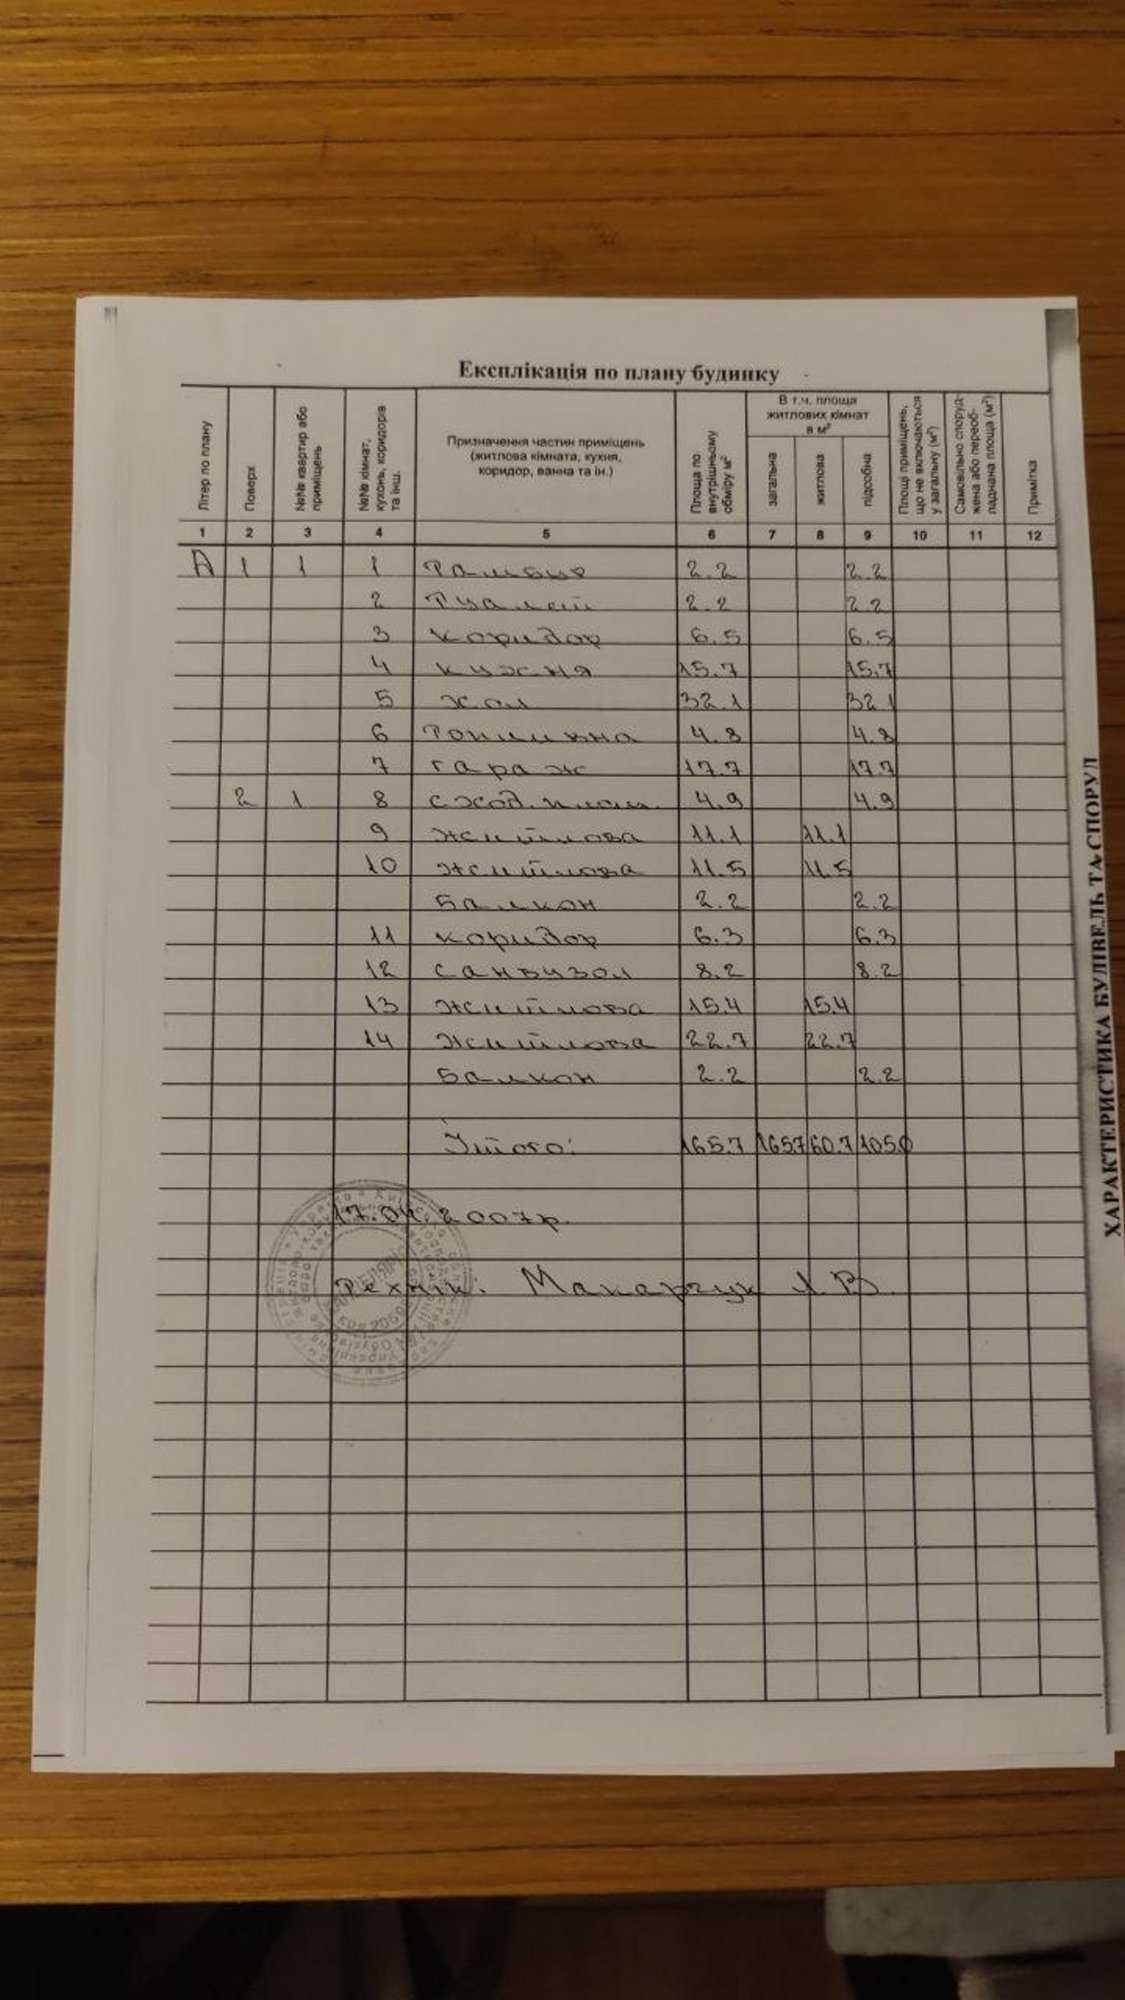 Експлікація по плану будинку
Літер по плану
Поверх
№№ квартир або приміщень
№№ кімнат, кухонь, коридорів та інш.
Призначення частин приміщень
(житлова кімната, кухня,
коридор, ванна та ін.)
Площа по внутрішньому обміру м²
В т.ч. площа
житлових кімнат
в м²
загальна
житлова
підсобна
Площі приміщень, що не включаються у загальну (м²)
Самовільно споруджена або переобладнана площа (м²)
Примітка
1 2 3 4 5 6 7 8 9 10 11 12
А 1 1 1 Тамбур 2.2 2.2
2 Туалет 2.2 2.2
3 коридор 6.5 6.5
4 кухня 15.7 15.7
5 хол 32.1 32.1
6 Топильна 4.8 4.8
7 гараж 17.7 17.7
2 1 8 сход. площ. 4.9 4.9
9 житлова 11.1 11.1
10 житлова 11.5 11.5
Балкон 2.2 2.2
11 коридор 6.3 6.3
12 санвузол 8.2 8.2
13 житлова 15.4 15.4
14 житлова 22.7 22.7
Балкон 2.2 2.2
Итого: 165.7 165.7 60.7 105.0
17.04.2007р.
Технік: Макарчук Л.В.
ХАРАКТЕРИСТИКА БУДІВЕЛЬ ТА СПОРУД